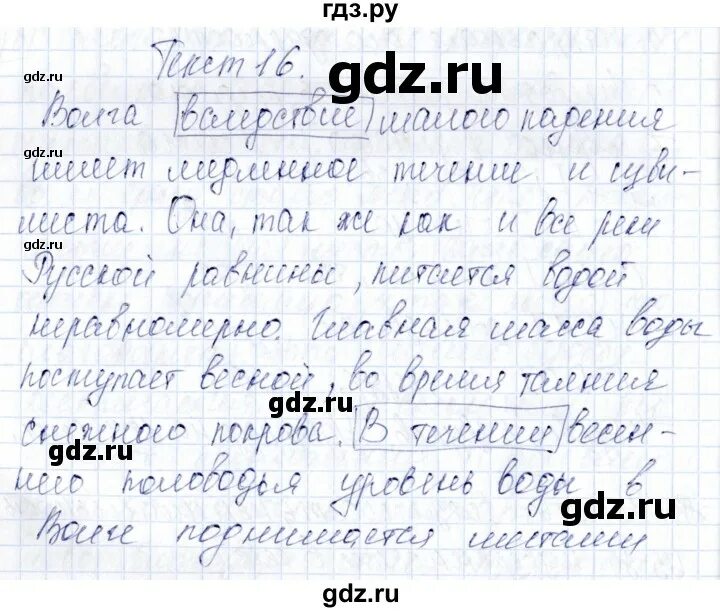 гдз.ру
gdz.ru
gdz.ru
Текст 16.
gdz.ru
Волга вследствие малого падения
gdz.ru
имеет медленное течение и изви-
листа. Она, так же как и все реки
gdz.ru
gdz.ru
Русской равнины, питается водой
неравномерно. Главная масса воды
поступает весной, во время таяния
gdz.ru
снежного покрова. В течении весен-
gdz.ru
него половодья уровень воды в
gdz.ru
Волге поднимается местами
gdz.ru
gdz.ru
gdz.ru